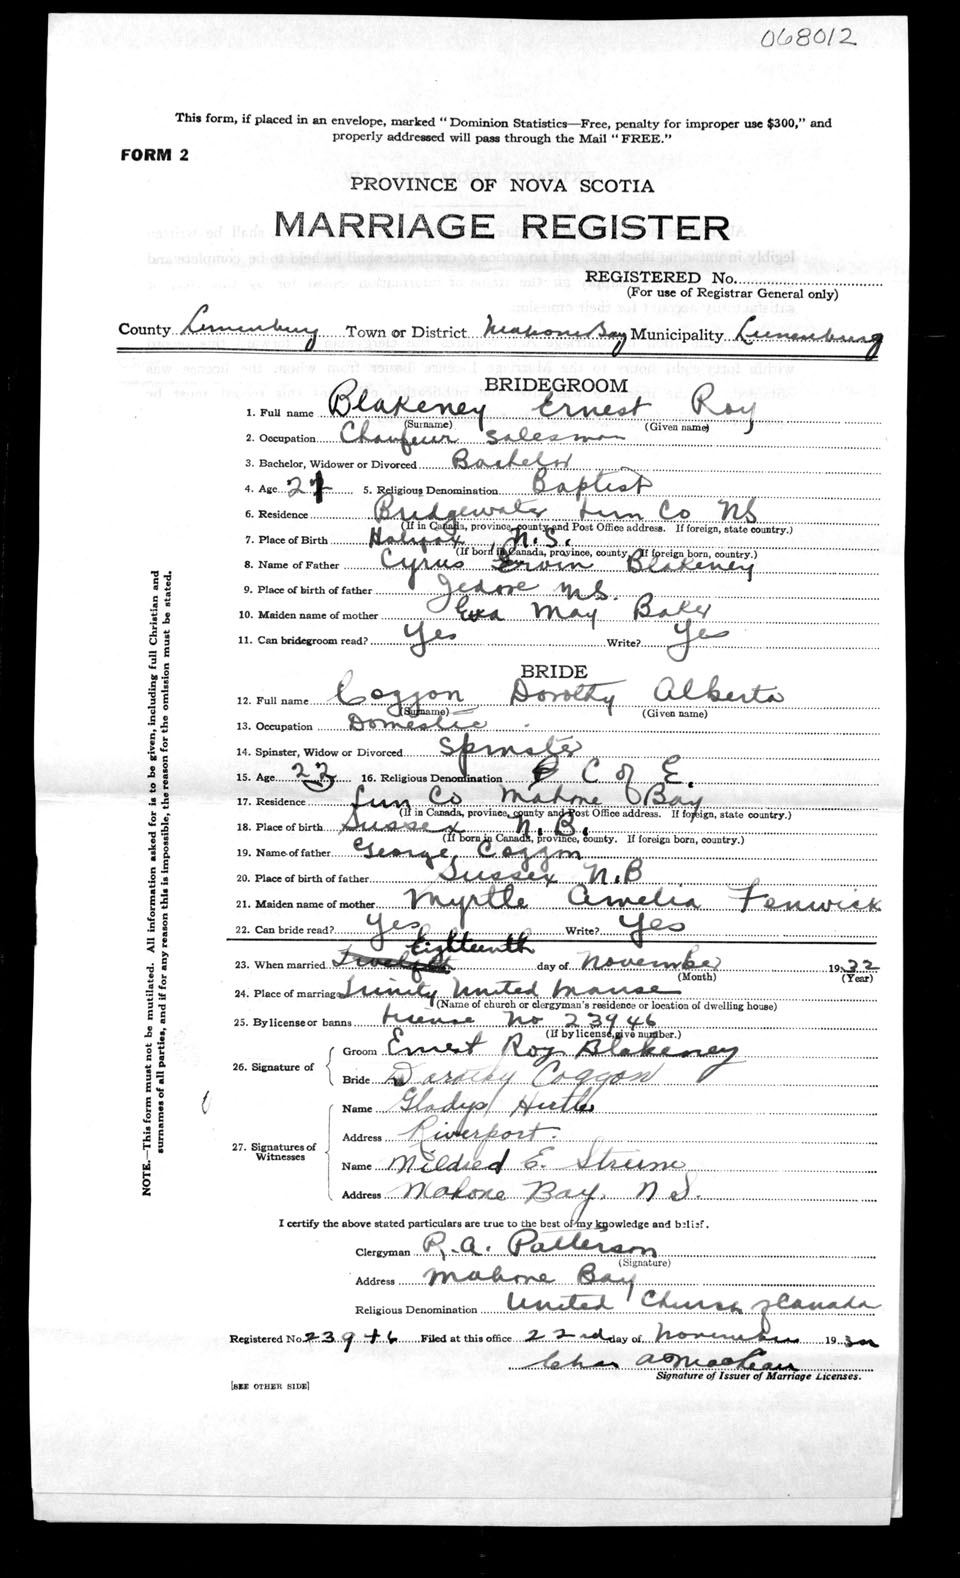 068012
This form, if placed in an envelope, marked "Dominion Statistics—Free, penalty for improper use $300," and
properly addressed will pass through the Mail "FREE."
FORM 2
PROVINCE OF NOVA SCOTIA
MARRIAGE REGISTER
REGISTERED No.
(For use of Registrar General only)
County Lunenburg Town or District Mahone Bay Municipality Lunenburg
BRIDEGROOM
1. Full name Blakeney Ernest Roy
(Surname) (Given name)
2. Occupation Chaufeur Salesman
3. Bachelor, Widower or Divorced Bachelor
4. Age 5. Religious Denomination Baptist
6. Residence Bridgewater Lun Co NS
(If in Canada, province, county and Post Office address. If foreign, state country.)
7. Place of Birth Halifax, N.S.
(If born in Canada, province, county. If foreign born, country.)
8. Name of Father Cyrus Ervin Blakeney
9. Place of birth of father Jedore N.S.
10. Maiden name of mother Eva May Baker
11. Can bridegroom read? Yes Write? Yes
BRIDE
12. Full name Coggon Dorothy Alberta
(Surname) (Given name)
13. Occupation Domestic
14. Spinster, Widow or Divorced Spinster
15. Age 22 16. Religious Denomination C of E.
17. Residence Lun Co Mahone Bay
(If in Canada, province, county and Post Office address. If foreign, state country.)
18. Place of birth Sussex N.B.
(If born in Canada, province, county. If foreign born, country.)
19. Name of father George Coggon
20. Place of birth of father Sussex N.B
21. Maiden name of mother Myrtle Amelia Fenwick
22. Can bride read? Yes Write? Yes
Eighteenth
23. When married day of November 1932
(Month) (Year)
24. Place of marriage Trinity United Manse
(Name of church or clergyman's residence or location of dwelling house)
25. By license or banns License No 23946
(If by license, give number.)
26. Signature of
Groom Ernest Roy Blakeney
Bride Dorothy Coggon
27. Signatures of Witnesses
Name Gladys Hirtle
Address Riverport.
Name Mildred E. Strum
Address Mahone Bay, N S.
I certify the above stated particulars are true to the best of my knowledge and belief.
Clergyman R. A. Patterson
(Signature)
Address Mahone Bay
Religious Denomination United Church of Canada
Registered No. 23946 Filed at this office 22nd day of November 1932
Chas A MacLean
Signature of Issuer of Marriage Licenses.
[SEE OTHER SIDE]
NOTE.—This form must not be mutilated. All information asked for is to be given, including full Christian and
surnames of all parties, and if for any reason this is impossible, the reason for the omission must be stated.